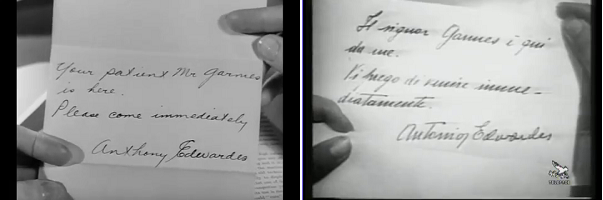 Your patient Mr Garmes
is here.
Please come immediately
Anthony Edwardes
Il signor Garmes è qui
da me.
Vi prego di venire imme-
diatamente.
Antonio Edwardes